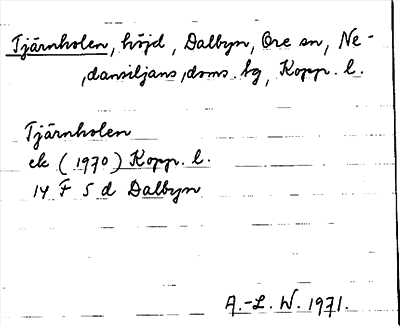 Tjärnholen, höjd, Dalbyn, Ore sn, Ne-
dansiljans doms. hg, Kopp. l.
Tjärnholen
ek (1970) Kopp. l.
14 F 5 d Dalbyn
A.-L. W. 1971.